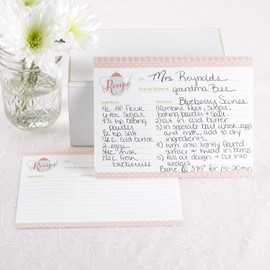 To: Mrs. Reynolds
From the kitchen of: grandma Bee
Recipe
Blueberry Scones
Ingredients:
4c. AP flour
6 tbs. Sugar
4½ tsp baking
powder
½ tsp salt
½ c. cold butter
2 eggs
¾c. milk
1½c. fresh
blueberries
Directions:
1) Combine flour, sugar,
baking powder + salt.
2) cut in cold butter
3) in separate bowl whisk eggs
and milk, add to dry
ingredients.
4) turn onto lightly floured
surface + knead in
5) Roll out dough + cut into
Bake @ 375° for 15-20 min.
Recipe